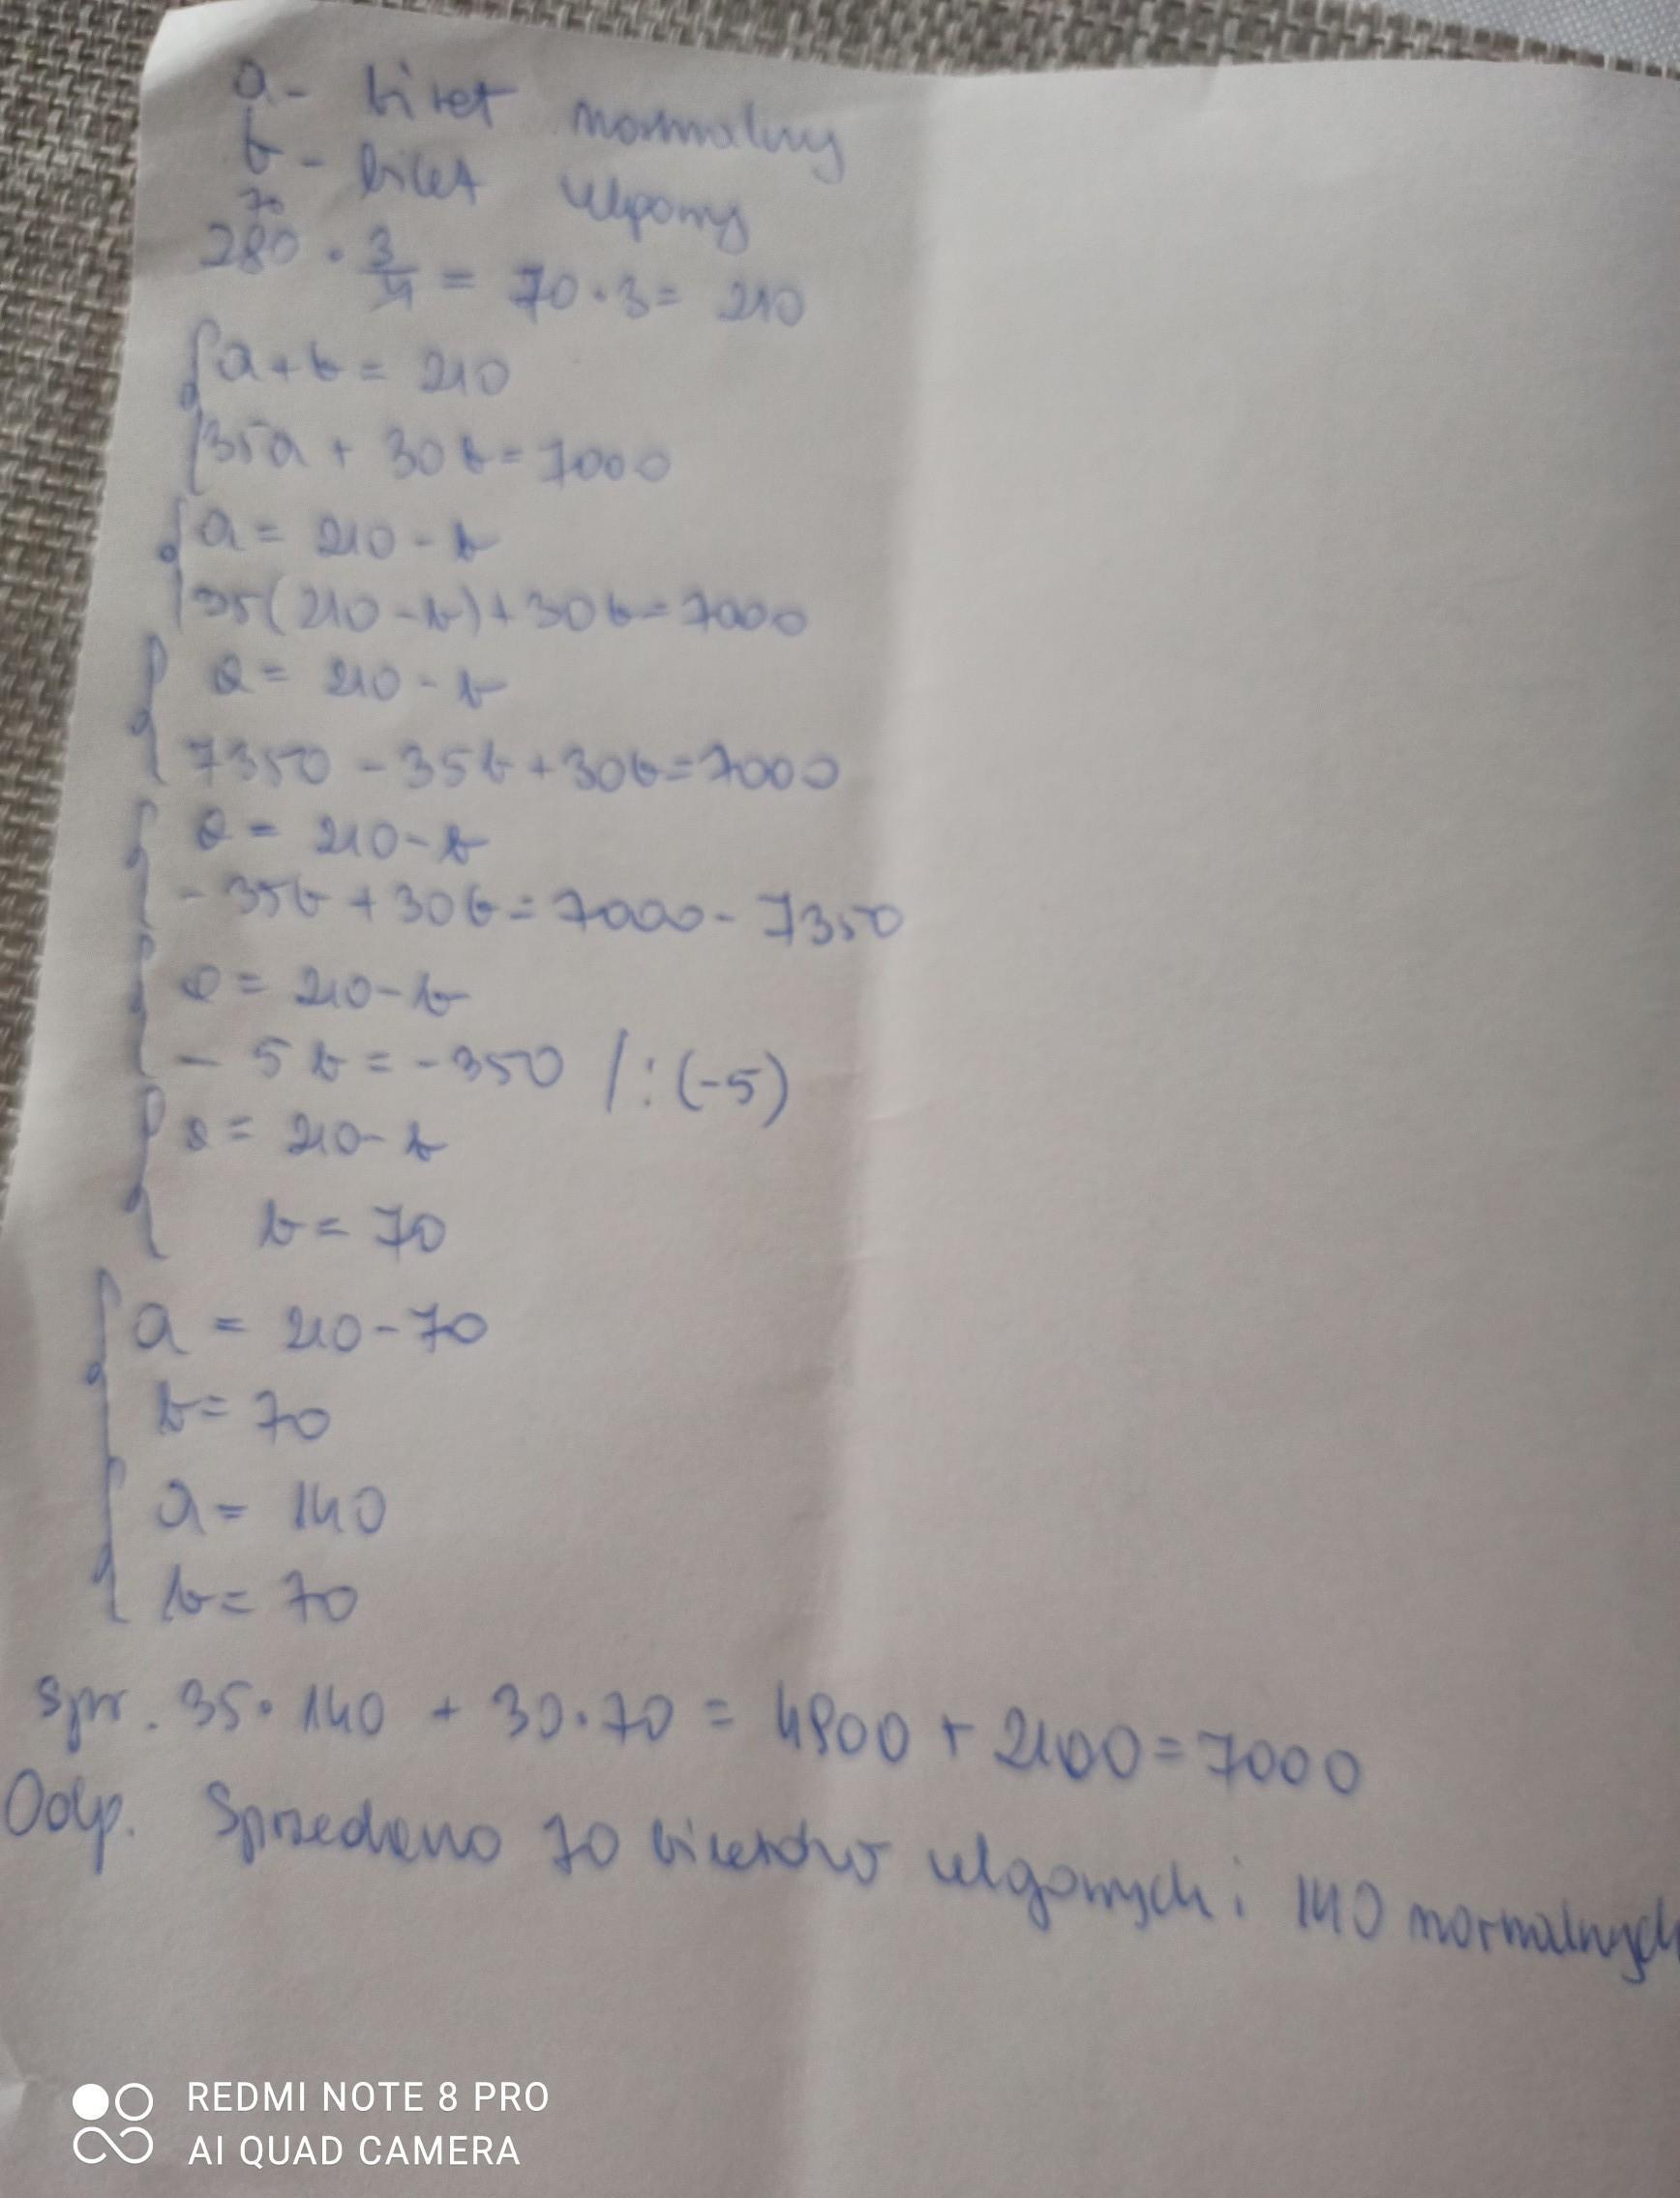 a - bilet normalny
b - bilet ulgowy
70
280 · 3/4 = 70 · 3 = 210
a + b = 210
35a + 30b = 7000
a = 210 - b
35(210 - b) + 30b = 7000
a = 210 - b
7350 - 35b + 30b = 7000
a = 210 - b
- 35b + 30b = 7000 - 7350
a = 210 - b
- 5b = -350 /:(-5)
a = 210 - b
b = 70
a = 210 - 70
b = 70
a = 140
b = 70
spr. 35 · 140 + 30 · 70 = 4900 + 2100 = 7000
Odp. Sprzedano 70 biletów ulgowych i 140 normalnych
REDMI NOTE 8 PRO
AI QUAD CAMERA